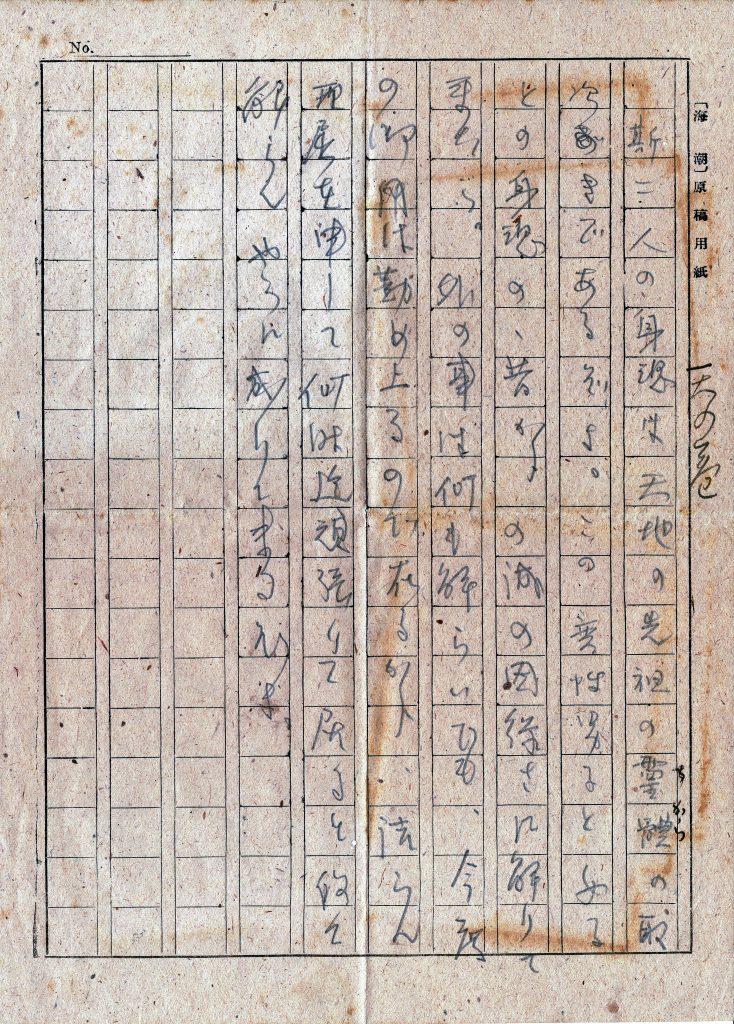 No.
「海潮」原稿用紙
天の巻
斯二人の身魂は天地の先祖の霊體の取
ちから
次ぎである ぞよ。この変性男子と女子
との身魂の、昔からの深の因縁さに解りて
来たら、外の事は何も解らいでも、今度
の御用は勤め上るので在るから、詰らん
理屈を申して何時迄頑張りて居ると後で
解らんやうに成りて来るぞよ。